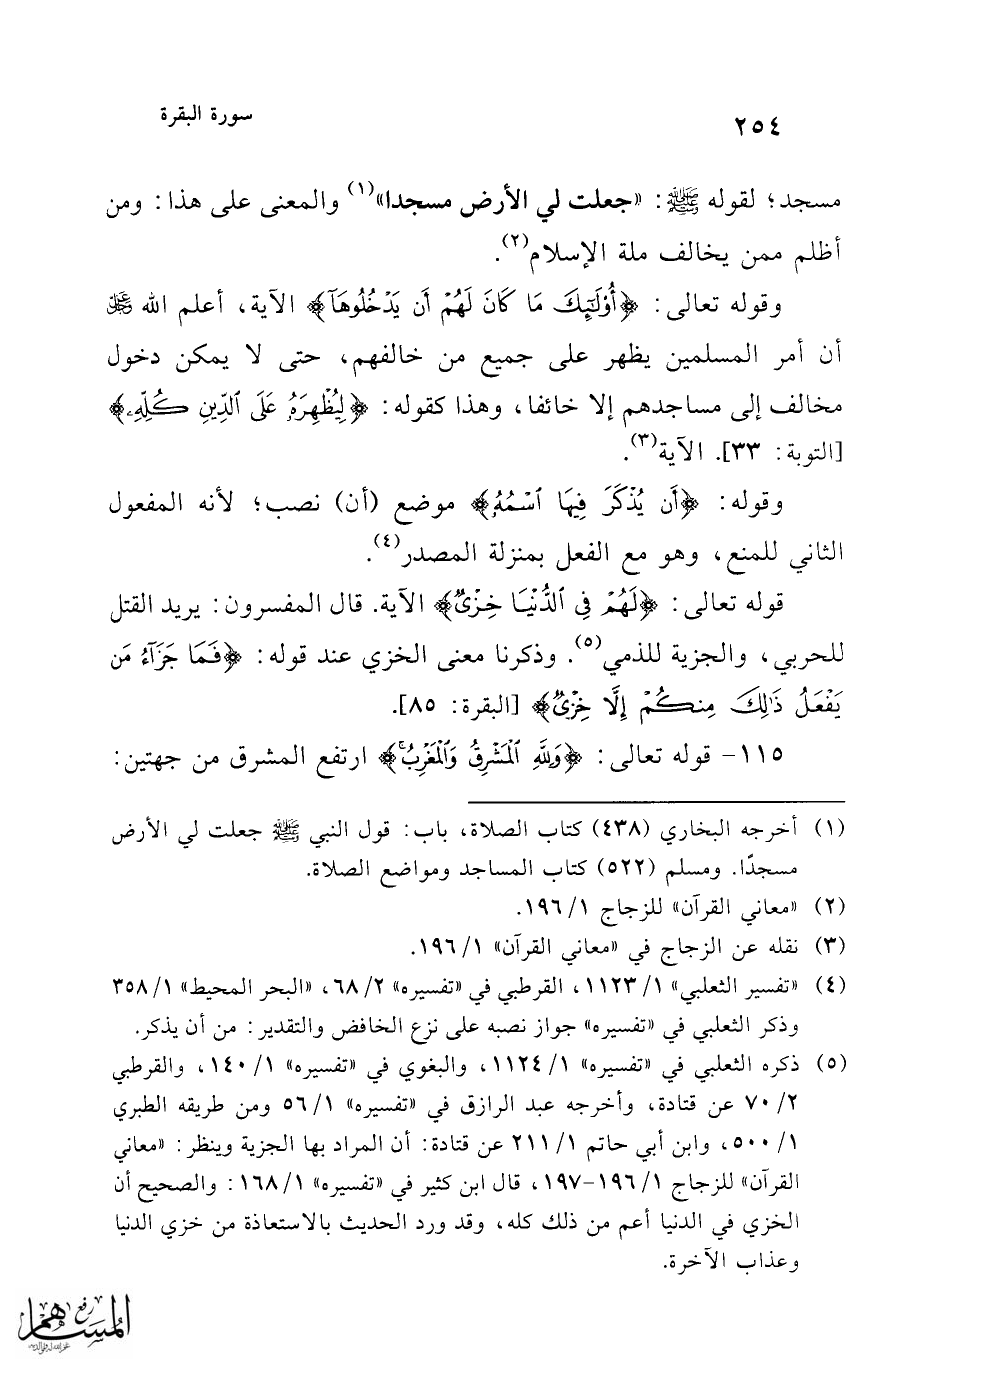 سورة البقرة
٢٥٤
مسجد؛ لقوله ﷺ: «جعلت لي الأرض مسجدا»(١) والمعنى على هذا: ومن
أظلم ممن يخالف ملة الإسلام(٢).
وقوله تعالى: ﴿أُوْلَٰٓئِكَ مَا كَانَ لَهُمۡ أَن يَدۡخُلُوهَآ﴾ الآية، أعلم الله ﷻ
أن أمر المسلمين يظهر على جميع من خالفهم، حتى لا يمكن دخول
مخالف إلى مساجدهم إلا خائفا، وهذا كقوله: ﴿لِيُظۡهِرَهُۥ عَلَى ٱلدِّينِ كُلِّهِۦ﴾
[التوبة: ٣٣]. الآية(٣).
وقوله: ﴿أَن يُذۡكَرَ فِيهَا ٱسۡمُهُۥ﴾ موضع (أن) نصب؛ لأنه المفعول
الثاني للمنع، وهو مع الفعل بمنزلة المصدر(٤).
قوله تعالى: ﴿لَهُمۡ فِي ٱلدُّنۡيَا خِزۡيٞ﴾ الآية. قال المفسرون: يريد القتل
للحربي، والجزية للذمي(٥). وذكرنا معنى الخزي عند قوله: ﴿فَمَا جَزَآءُ مَن
يَفۡعَلُ ذَٰلِكَ مِنكُمۡ إِلَّا خِزۡيٞ﴾ [البقرة: ٨٥].
١١٥- قوله تعالى: ﴿وَلِلَّهِ ٱلۡمَشۡرِقُ وَٱلۡمَغۡرِبُۚ﴾ ارتفع المشرق من جهتين:
(١) أخرجه البخاري (٤٣٨) كتاب الصلاة، باب: قول النبي ﷺ جعلت لي الأرض
مسجدًا. ومسلم (٥٢٢) كتاب المساجد ومواضع الصلاة.
(٢) «معاني القرآن» للزجاج ١/ ١٩٦.
(٣) نقله عن الزجاج في «معاني القرآن» ١/ ١٩٦.
(٤) «تفسير الثعلبي» ١/ ١١٢٣، القرطبي في «تفسيره» ٢/ ٦٨، «البحر المحيط» ١/ ٣٥٨
وذكر الثعلبي في «تفسيره» جواز نصبه على نزع الخافض والتقدير: من أن يذكر.
(٥) ذكره الثعلبي في «تفسيره» ١/ ١١٢٤، والبغوي في «تفسيره» ١/ ١٤٠، والقرطبي
٢/ ٧٠ عن قتادة، وأخرجه عبد الرازق في «تفسيره» ١/ ٥٦ ومن طريقه الطبري
١/ ٥٠٠، وابن أبي حاتم ١/ ٢١١ عن قتادة: أن المراد بها الجزية وينظر: «معاني
القرآن» للزجاج ١/ ١٩٦-١٩٧، قال ابن كثير في «تفسيره» ١/ ١٦٨: والصحيح أن
الخزي في الدنيا أعم من ذلك كله، وقد ورد الحديث بالاستعاذة من خزي الدنيا
وعذاب الآخرة.